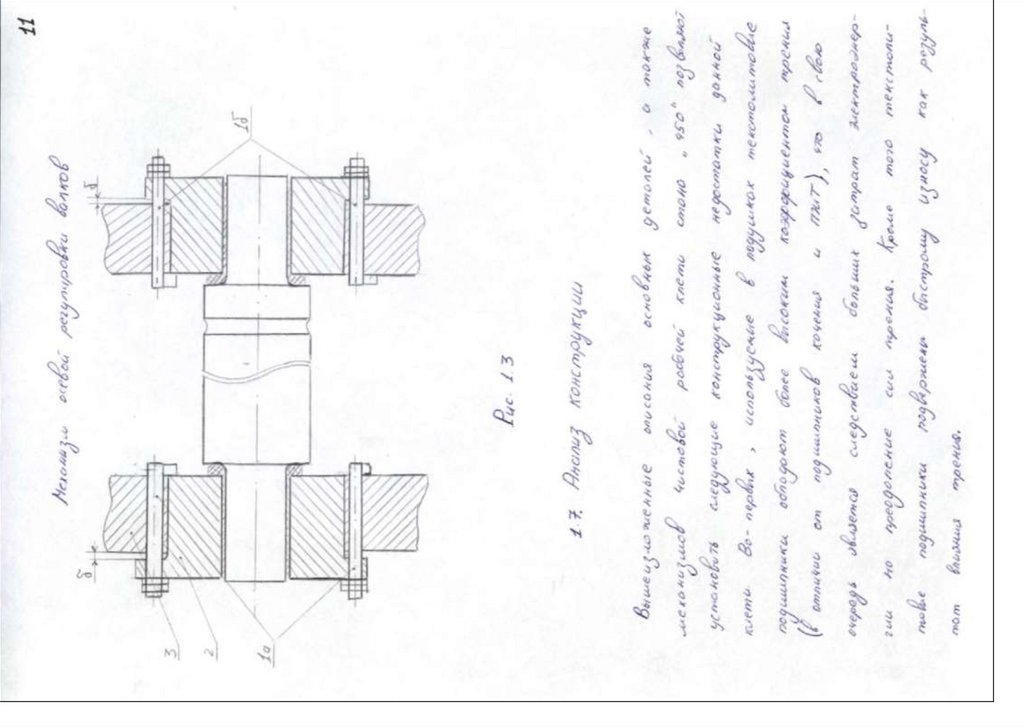 11
Механизм осевой регулировки валков
δ
δ
3
2
1а
1б
Рис. 1.3
1.7. Анализ конструкции
Вышеизложенные описания основных деталей, а также
механизмов чистовой рабочей клети стана „ 950" позволяют
установить следующие конструкционные недостатки данной
клети. Во-первых, использование в подушках текстолитовые
подшипники обладают более высоким коэффициентом трения
(в отличии от подшипников качения и ПЖТ), что в свою
очередь является следствием больших затрат электроэнер-
гии на преодоление сил трения. Кроме того текстоли-
товые подшипники подвержены быстрому износу как резуль-
тат влияния трения.